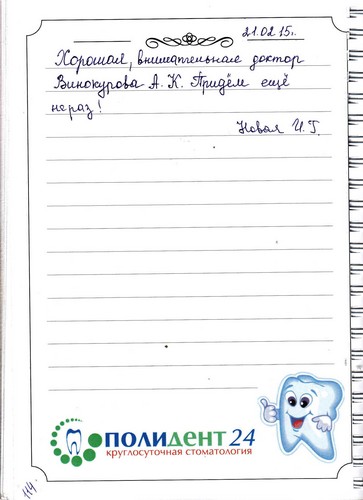 21.02.15г.
Хорошая, внимательная доктор
Винокурова А. К. Придём ещё
не раз!
Новая И.Г.
ПОЛИДЕНТ 24
круглосуточная стоматология
114.